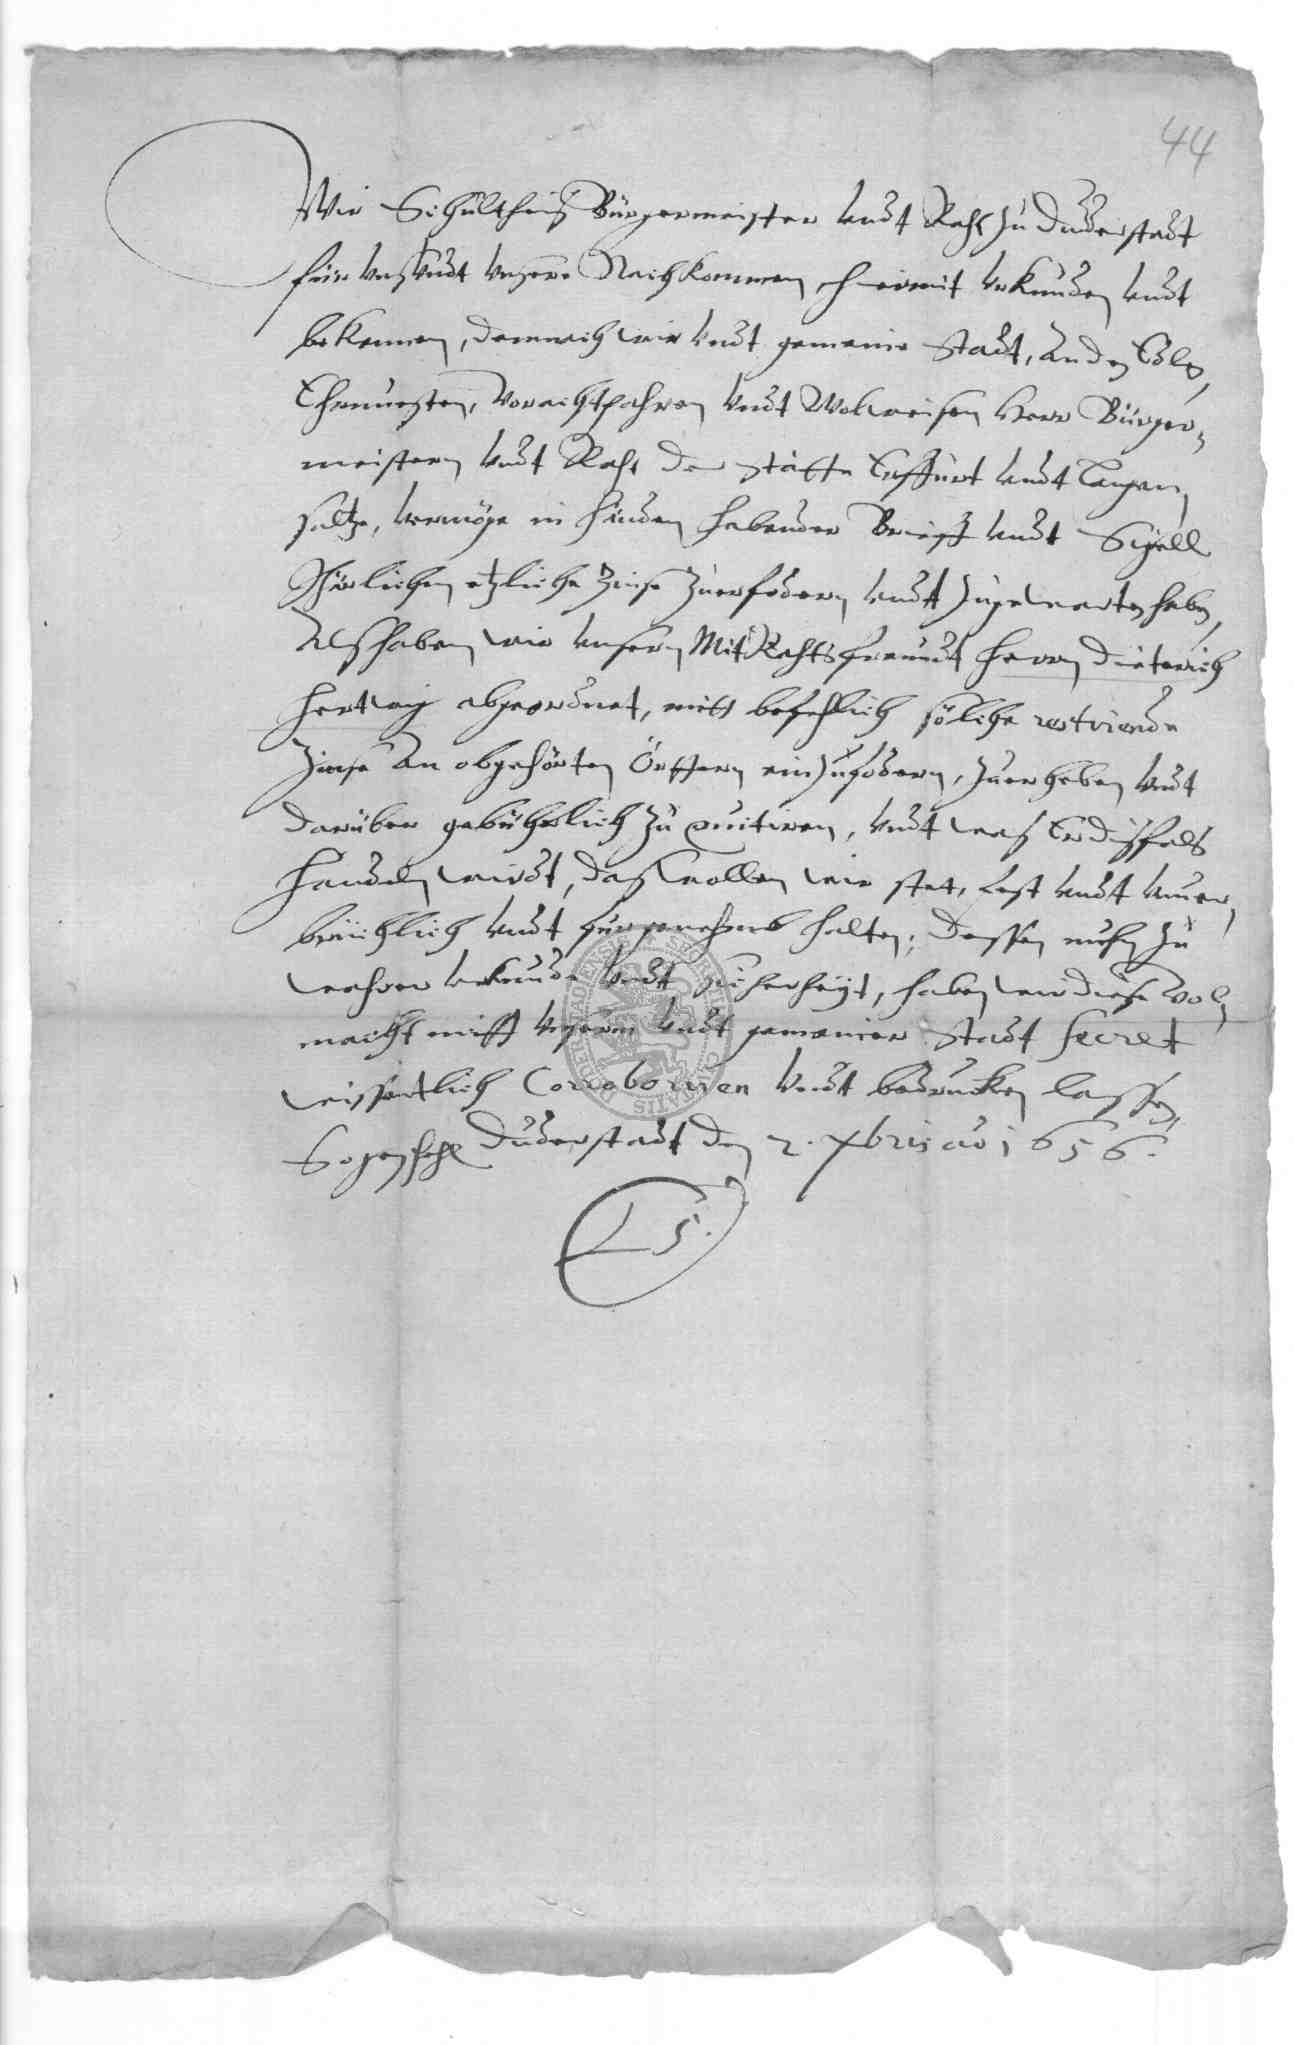 44
Wir Schultheiß Bürgermeister undt Raht zu Duderstadt
für unß undt unsere Nachkommen, hiermit urkunden undt
bekennen, demnach wir undt gemeine Stadt, an den Edlen,
Ehrnuesten, Vorachtpahren undt Wolweisen Herrn Bürger-
meistern undt Raht der Städte Erffurt undt Langen
saltze, vermöge in Handen habender Brieff undt Sigell
Jhärlichen etzliche Zinse zuerfodern undt zugewarten haben,
Alß haben wir unsern Mit Rahtsfreundt Herrn Dieterich
Hertwig abgeordnet, mitt befehlich sölche restirende
Zinse an obgehörten Örttern einzufodern, zuerheben undt
darüber gebührlich zu quitiren, undt waß Er dißfals
handeln wirdt, daß wollen wir stet, fest undt unuer-
brüchlich undt für genehmb halten; dessen nuhn zu
wahrer urkunde undt sicherheyt, haben wir diese Vol-
macht mitt unserm undt gemeiner Stadt Secret
wissentlich Corroboriren undt bedrucken lassen,
So geschehen Duderstadt den 2. Xbris ao 1656.
L S.
SECRETUM CIVITATIS DUDERSTADIENSIS